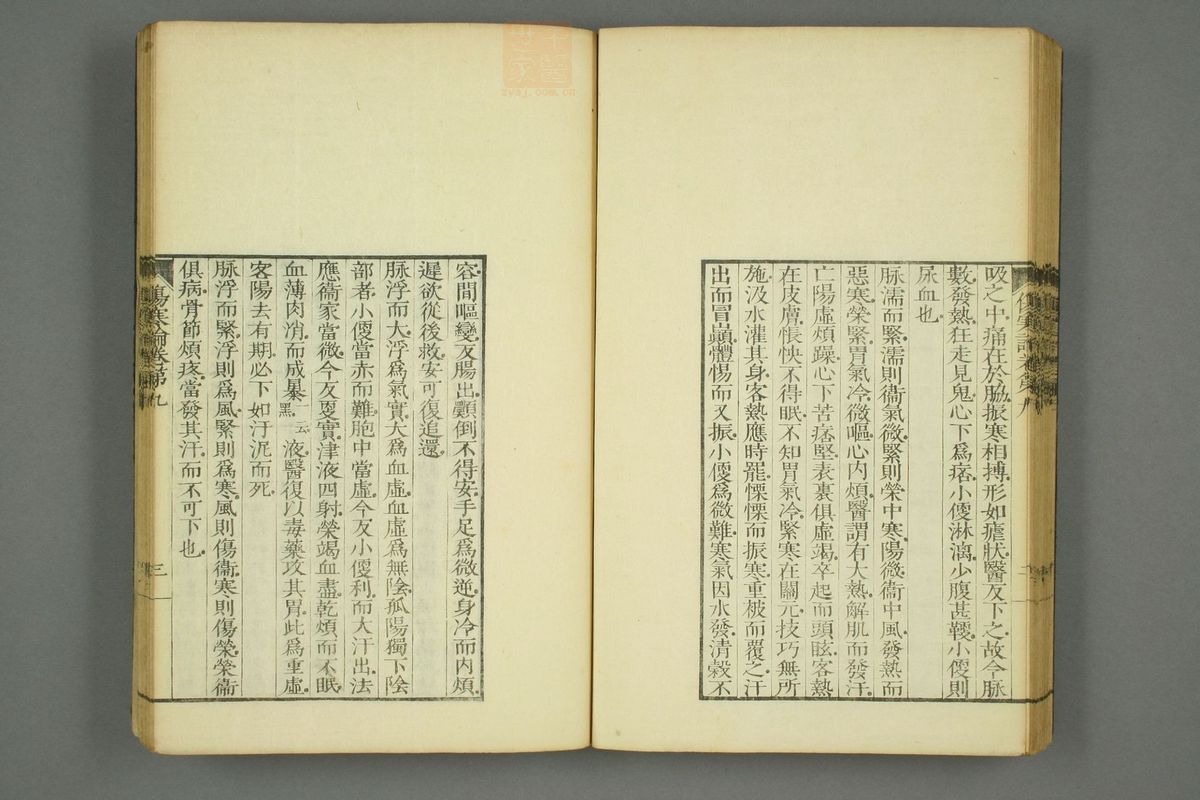 吸之中痛在於脇振寒相搏形如瘧狀醫反下之故令脉
數發熱狂走見鬼心下爲痞小便淋漓少腹甚鞕小便則
尿血也
脉濡而緊濡則衞氣微緊則榮中寒陽微衞中風發熱而
惡寒榮緊胃氣冷微嘔心內煩醫謂有大熱解肌而發汗
亡陽虛煩躁心下苦痞堅表裏俱虛竭卒起而頭眩客熱
在皮膚悵怏不得眠不知胃氣冷緊寒在關元技巧無所
施汲水灌其身客熱應時罷慄慄而振寒重被而覆之汗
出而冒巔體惕而又振小便爲微難寒氣因水發清穀不
容間嘔變反腸出顚倒不得安手足爲微逆身冷而內煩
遲欲從後救安可復追還
脉浮而大浮爲氣實大爲血虛血虛爲無陰孤陽獨下陰
部者小便當赤而難胞中當虛今反小便利而大汗出法
應衞家當微今反更實津液四射榮竭血盡乾煩而不眠
血薄肉消而成暴黑一云液醫復以毒藥攻其胃此爲重虛
客陽去有期必下如汙泥而死
脉浮而緊浮則爲風緊則爲寒風則傷衞寒則傷榮榮衞
俱病骨節煩疼當發其汗而不可下也
傷寒論卷第九
三
zyaj.com.cn